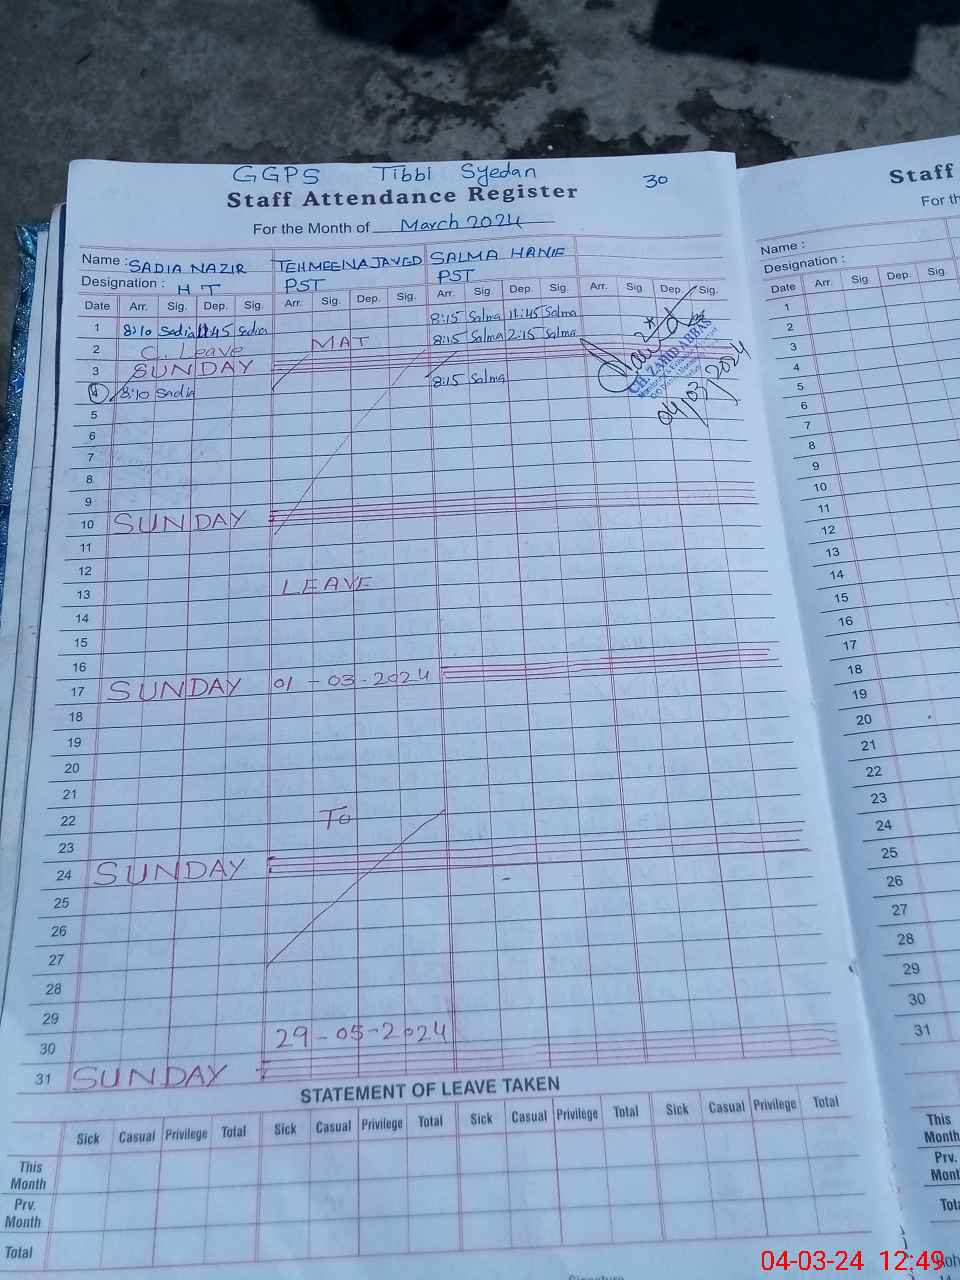 GGPS Tibbi Syedan
30
Staff Attendance Register
For the Month of March 2024
Name : SADIA NAZIR TEHMEENA JAVED SALMA HANIF
Designation : H T PST PST
Date Arr. Sig. Dep. Sig. Arr. Sig. Dep. Sig. Arr. Sig. Dep. Sig. Arr. Sig. Dep. Sig.
1 8:10 Sadia 11:45 Sadia 8:15 Salma 11:45 Salma
2 C. Leave MAT 8:15 Salma 2:15 Salma
3 SUNDAY
4 8:10 Sadia 8:15 Salma
CH. ZAHID ABBAS
04/03/2024
5
6
7
8
9
10 SUNDAY
11
12
13 LEAVE
14
15
16
17 SUNDAY 01-03-2024
18
19
20
21
22 To
23
24 SUNDAY
25
26
27
28
29
30 29-05-2024
31 SUNDAY
STATEMENT OF LEAVE TAKEN
Sick Casual Privilege Total Sick Casual Privilege Total Sick Casual Privilege Total Sick Casual Privilege Total
This Month
Prv. Month
Total
Staff
For th
Name :
Designation :
Date Arr. Sig. Dep. Sig.
1
2
3
4
5
6
7
8
9
10
11
12
13
14
15
16
17
18
19
20
21
22
23
24
25
26
27
28
29
30
31
This Month
Prv.
04-03-24 12:49